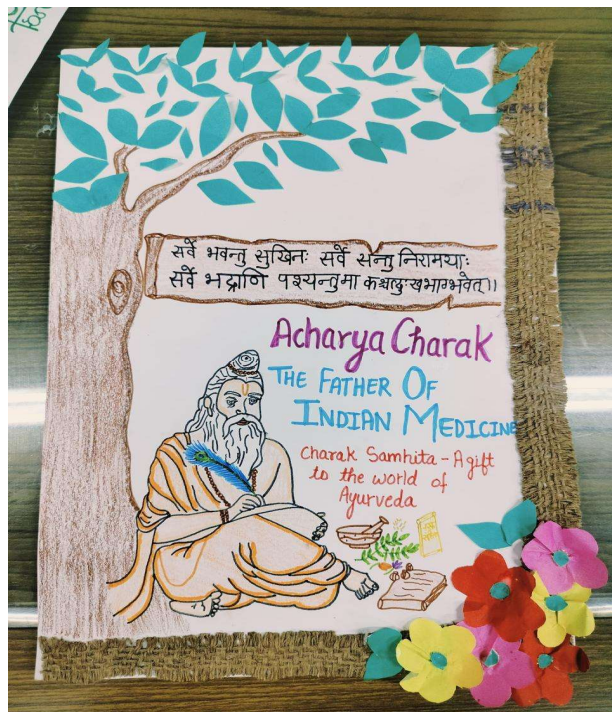 सर्वे भवन्तु सुखिनः सर्वे सन्तु निरामयाः
सर्वे भद्राणि पश्यन्तुमा कश्चाद्दुःखभाग्भवेत्।।
Acharya Charak
THE FATHER OF
INDIAN MEDICINE
Charak Samhita - A gift
to the world of
Ayurveda